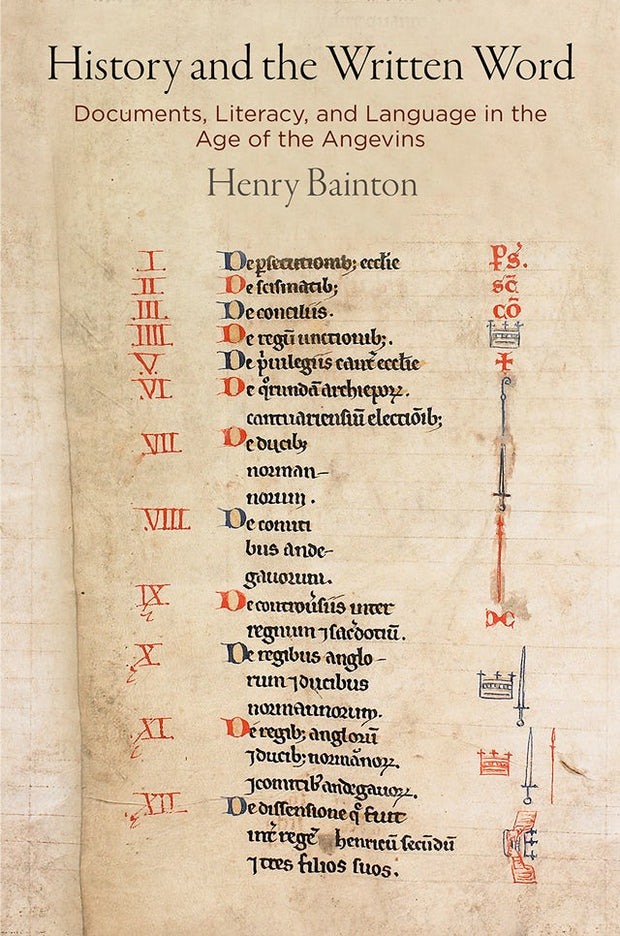 History and the Written Word
Documents, Literacy, and Language in the
Age of the Angevins
Henry Bainton
I De p̱secutionib; eccl̄ie p̄s̄.
II De scismatib; sc̄
III De conciliis. cō
IIII De regū unctionib;.
V. De p͛uilegiis cant᷑ eccl̄ie
VI De q̊rundā archiep̄oꝝ.
cantuariensiū electiōib;
VII De ducib;
norman-
norum.
VIII De comiti
bus ande-
gauorum.
IX De controu͛siis inter
regnum ⁊ sac͛dotiū.
X De regibus anglo-
rum ⁊ ducibus
normannorum.
XI De regib; anglorū
⁊ ducib; normānoꝝ.
⁊ comitib; andegauoꝝ.
XII De dissensione q̄ fuit
int͛ regē henricū secūdū
⁊ tres filios suos.